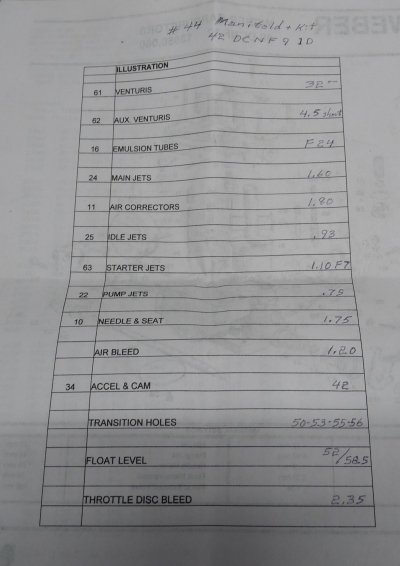 WEBER
# 44 Manifold + Kit
42 DCNF 9 1D
ILLUSTRATION
61 VENTURIS 32
62 AUX. VENTURIS 4.5 short
16 EMULSION TUBES F24
24 MAIN JETS 1.60
11 AIR CORRECTORS 1.80
25 IDLE JETS .93
63 STARTER JETS 1.10 F7
22 PUMP JETS .75
10 NEEDLE & SEAT 1.75
AIR BLEED 1.20
34 ACCEL & CAM 42
TRANSITION HOLES 50-53-55-56
FLOAT LEVEL 52/58.5
THROTTLE DISC BLEED 2.35